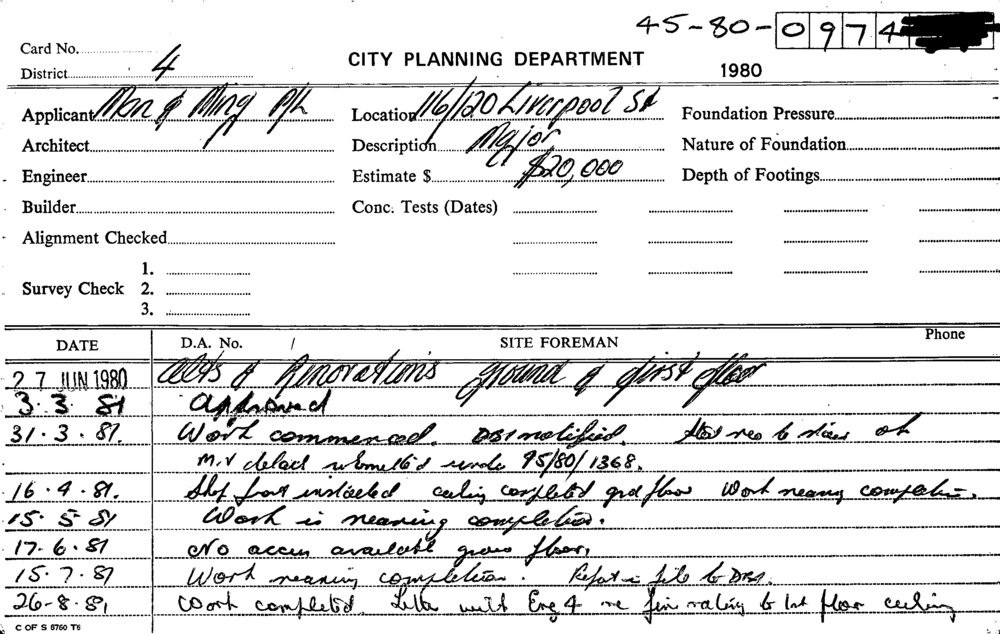 45-80-0974
Card No.
District 4
CITY PLANNING DEPARTMENT
1980
Applicant Man & Ming P/L
Location 116/120 Liverpool St
Foundation Pressure
Architect
Description Major
Nature of Foundation
Engineer
Estimate $ $20,000
Depth of Footings
Builder
Conc. Tests (Dates)
Alignment Checked
Survey Check
1.
2.
3.
DATE
D.A. No.
SITE FOREMAN
Phone
27 JUN 1980 Alts & Renovations ground & first floor
3.3.81 Approved
31.3.81. Work commenced. DBS notified. ok
M.V submitted under 95/80/1368.
16.4.81. Shop front installed ceiling completed grd floor Work nearing completion.
15.5.81 Work is nearing completion.
17.6.81 No access available floor.
15.7.81 Work nearing completion. Report in file to DBS.
26-8-81, Work completed. Letter with Eng 4 re fire rating to 1st floor ceiling
C OF S 6760 T6